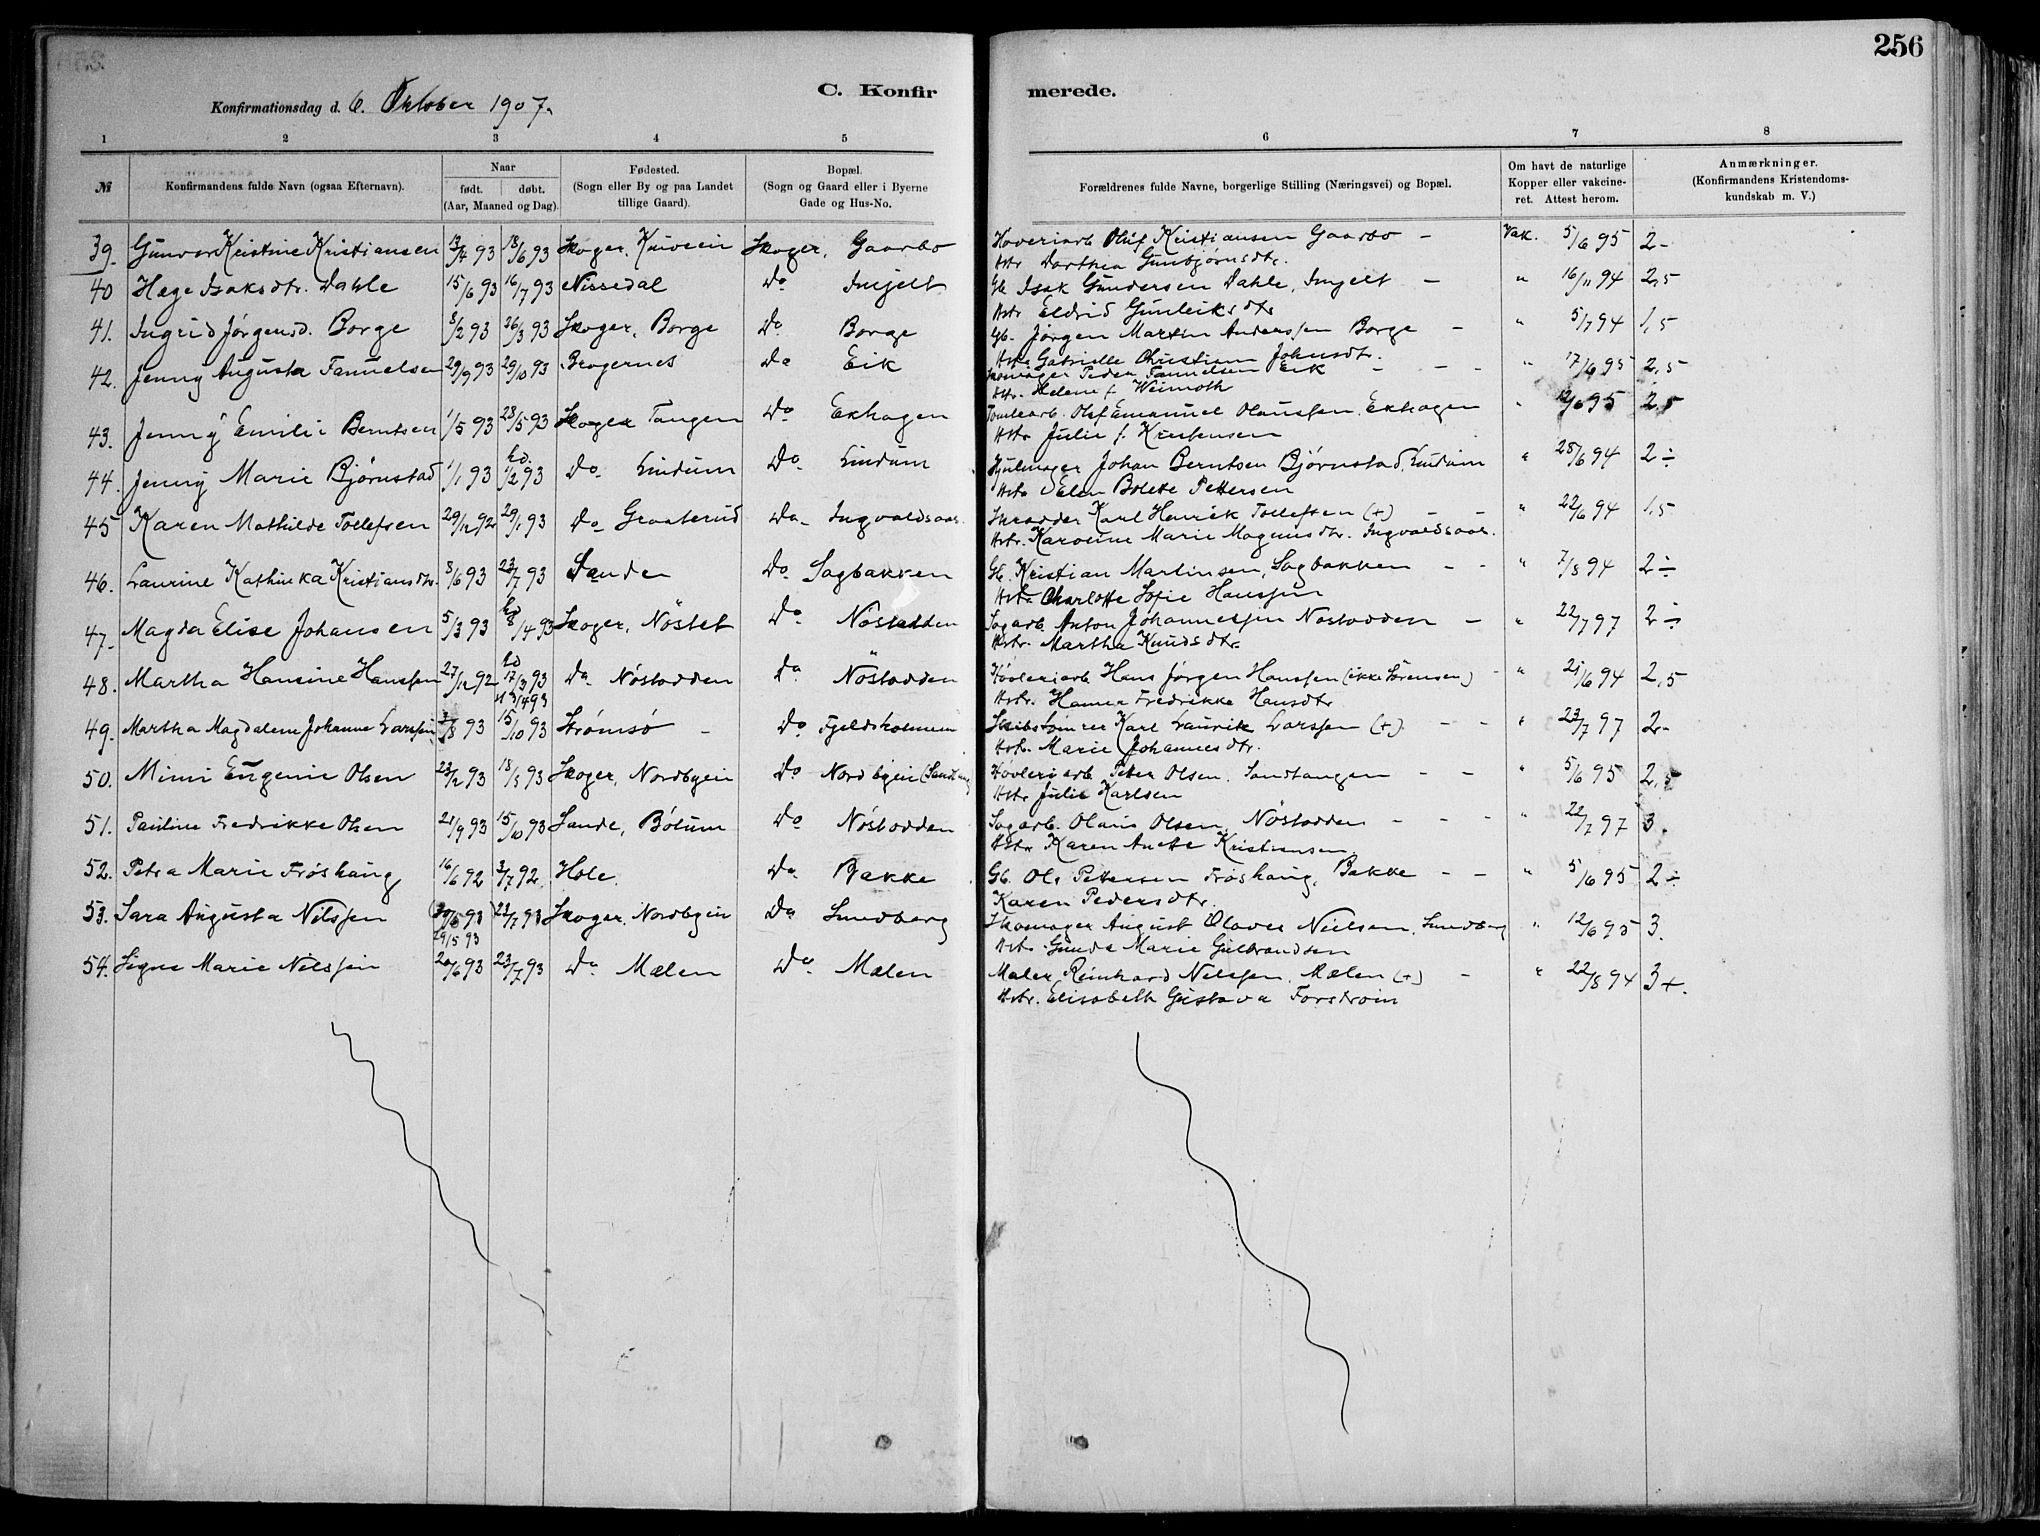 256
C. Konfir merede.
Konfirmationsdag d. 6. Oktober 1907.
1 2 3 4 5 6 7 8
№ Konfirmandens fulde Navn (ogsaa Efternavn). Naar født. døbt. (Aar, Maaned og Dag). Fødested. (Sogn eller By og paa Landet tillige Gaard). Bopæl. (Sogn og Gaard eller i Byerne Gade og Hus-No. Forældrenes fulde Navne, borgerlige Stilling (Næringsvei) og Bopæl. Om havt de naturlige Kopper eller vakcineret. Attest herom. Anmærkninger. (Konfirmandens Kristendomskundskab m. V.)
39. Gunvor Kristine Kristiansen 13/4 93 18/6 93 Skoger, Skoger, Gaarbo Høvleriarb. Oluf Kristiansen Gaarbo - Vak. 5/6 95 2-
Hstr Dorthea Gunbjørnsdtr.
40 Hæge Isaksdtr. Dahle 15/6 93 16/7 93 Nissedal Do Imjelt Gb. Isak Gundersen Dahle, Imjelt - " 16/11 94 2,5
Hstr Eldrid Gunleiksdtr
41. Ingrid Jørgensd. Borge 8/2 93 26/3 93 Skoger, Borge Do Borge Gb. Jørgen Martin Anderssen Borge - " 5/7 94 1,5
Hstr Gabrielle Christiane Johnsdtr.
42. Jenny Augusta Fanuelsen 29/9 93 29/10 93 Bragernes Do Eik Skomager Peder Fanuelsen Eik - - - " 17/6 95 2,5
Hstr. Helene f. Weimoth
43. Jenny Emilie Berntsen 1/5 93 28/5 93 Skoger Tangen Do Ekhagen Tomtearb. Olaf Emanuel Olaussen, Ekhagen " 12/6 95 2,5
Hstr Julie f. Kristensen
44. Jenny Marie Bjørnstad 1/1 93 hd. 1/2 93 Do Lindum Do Lindum Hjulmager Johan Berntsen Bjørnstad, Lindum " 28/6 94 2÷
Hstr Elen Bolette Pettersen
45 Karen Mathilde Tollefsen 29/12 92 29/1 93 Do Graaterud Do Ingvaldsaas. Skrædder Karl Henrik Tollefsen (+) - - " 22/6 94 1,5
Hstr. Karoline Marie Magnusdtr. Ingvaldsaas.
46. Laurine Kathinka Kristiansdtr. 8/6 93 23/7 93 Sande Do Sagbakken Gb. Kristian Martinsen, Sagbakken - - " 7/8 94 2÷
Hstr Charlotte Sofie Hanssen
47. Magda Elise Johansen 5/3 93 hd 8/4 93 Skoger, Nöstet Do Nöstodden Sagarb. Anton Johannessen Nöstodden - " 22/7 97 2÷
Hstr. Martha Knudsdtr.
48. Martha Hansine Hanssen 27/12 92 hd 17/3 93 Do Nöstodden Do Nöstodden Høvleriarb Hans Jørgen Hanssen (ikke Sörensen) - " 21/6 94 2,5
Hstr. Hanna Fredrikke Hansdtr
49. Martha Magdalene Johanne Larssen /8 93 15/10 93 Strømsö - Do Fjeldsholmen Skibstømrer Karl Laurik Larssen (+). - - " 23/7 97 2-
Hstr. Marie Johannesdtr.
50. Mimi Eugenie Olsen 23/2 93 18/5 93 Skoger, Nordbyen Do Nordbyen (Sandtang Høvleriarb Peter Olsen, Sandtangen - - " 5/6 95 2,5
Hstr Julie Karlsen
51. Pauline Fredrikke Olsen 21/9 93 15/10 93 Sande, Bólum Do Nöstodden Sagarb. Olaus Olsen, Nöstodden - - - " 22/7 97 3.
Hstr Karen Anette Kristiansen
52. Petra Marie Frøshaug 16/6 92 3/7 92. Hole. Do Bakke Gb. Ole Pettersen Frøshaug, Bakke - - " 5/6 95 2÷
Karen Pedersdtr.
53. Sara Augusta Nilssen (30/6 93) 29/5 93 23/7 93 Skoger, Nordbyen Do Sundberg Skomager August Olaves Nielsen, Sundberg " 12/6 95 3.
Hstr. Gunda Marie Gulbrandsen
54. Signe Marie Nilssen 20/6 93 23/7 93 Do Mælen Do Mælen Maler Reinhard Nilssen, Mælen (+) - " 22/8 94 3+.
Hstr. Elisabeth Gustava Forström